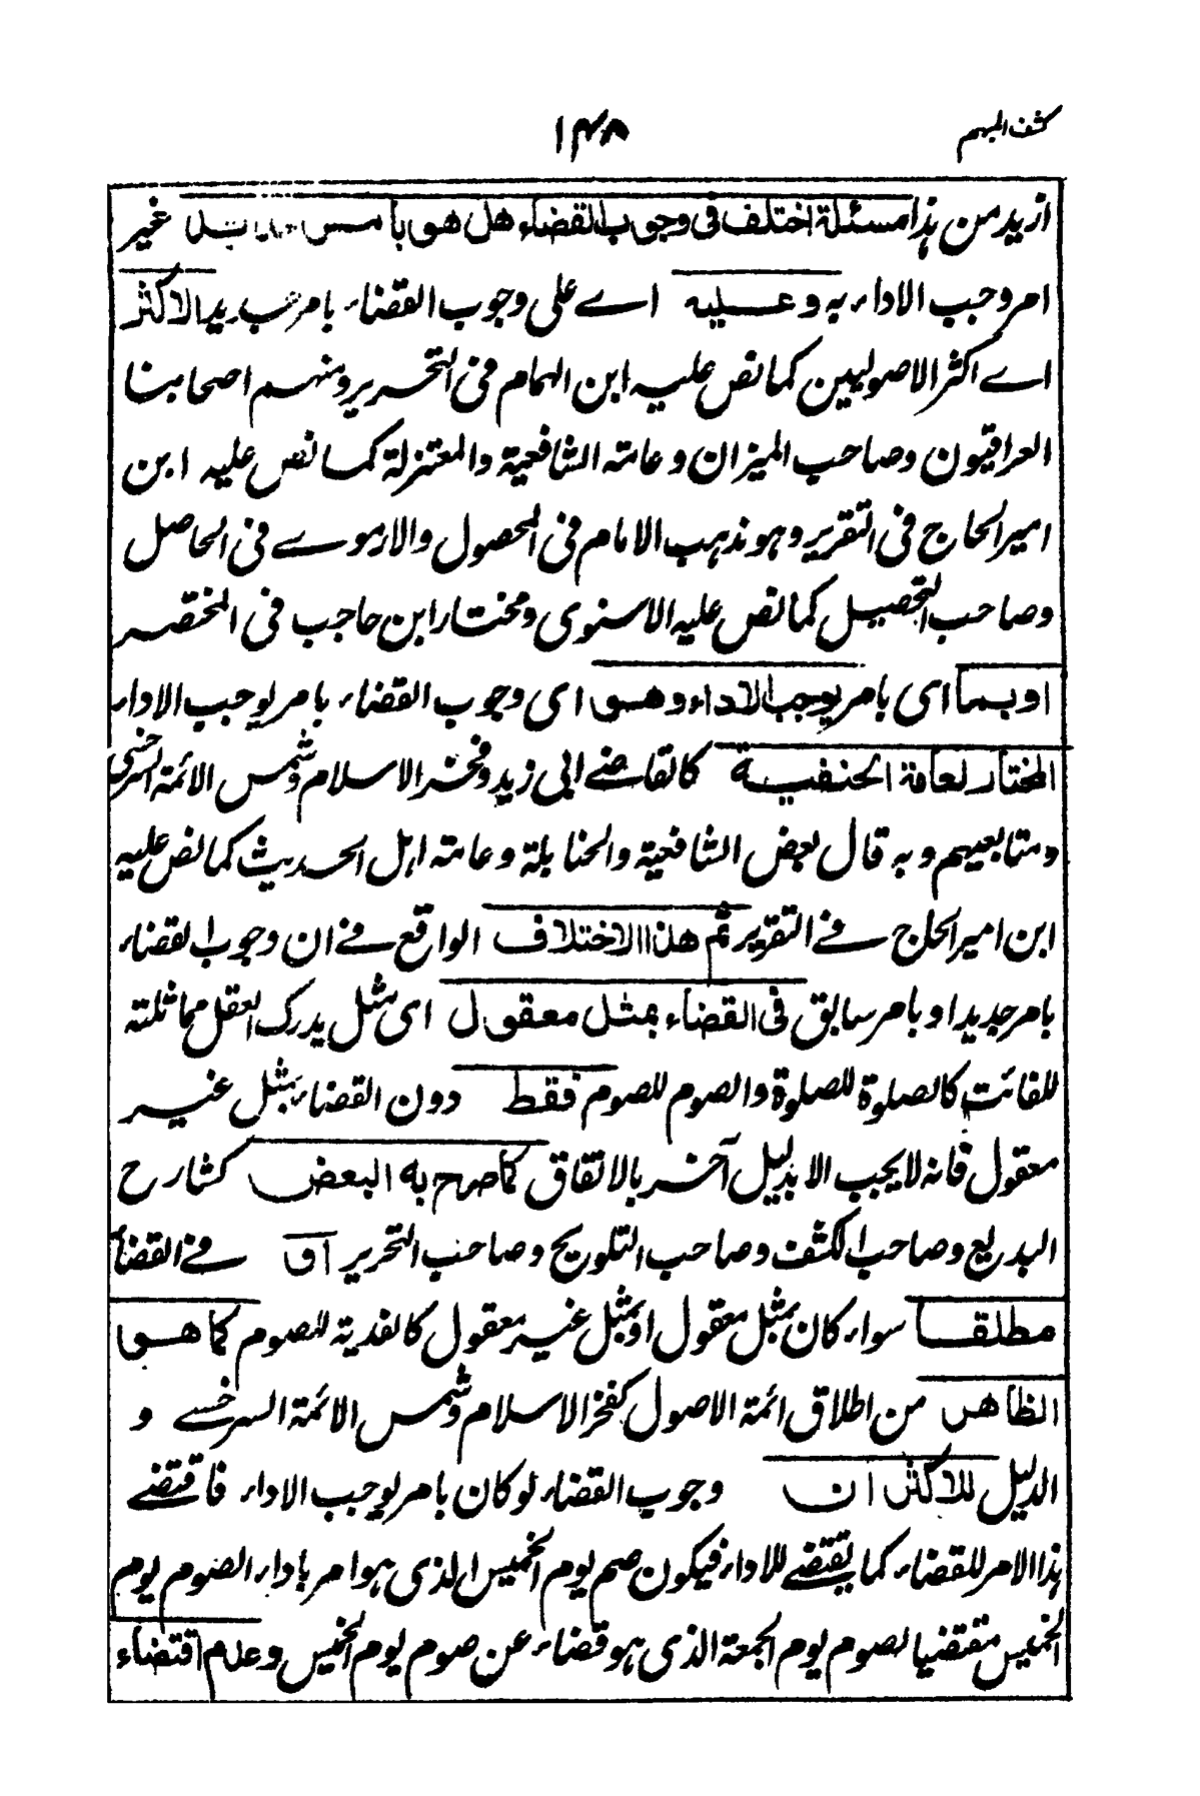 كشف المبهم
١٣٨
ازيد من هذا مسئلة اختلف فى وجوب القضاء هل هو بامر جديد غير
امر وجب الاداء به وعليه اے على وجوب القضاء بامر جديد الاكثر
اے اكثر الاصوليين كما نص عليه ابن الهمام فى التحرير ومنهم اصحابنا
العراقيون وصاحب الميزان وعامة الشافعية والمعتزلة كما نص عليه ابن
امير الحاج فى التقرير وهو مذهب الامام فى المحصول والارموے فى الحاصل
وصاحب التحصيل كما نص عليه الاسنوى ومختار ابن حاجب فى المختصر
او بما اى بامر يوجب الاداء وهو اى وجوب القضاء بامر يوجب الاداء
المختار لعامة الحنفية كالقاضے ابى زيد وفخر الاسلام وشمس الائمة السرخسى
ومتابعيهم وبه قال بعض الشافعية والحنابلة وعامة اهل الحديث كما نص عليه
ابن امير الحاج فے التقرير ثم هذا الاختلاف الواقع فے ان وجوب القضاء
بامر جديد او بامر سابق فى القضاء بمثل معقول اى بمثل يدرك العقل مماثلته
للفائت كالصلوة للصلوة والصوم للصوم فقط دون القضاء بمثل غير
معقول فانه لا يجب الا بدليل آخر بالاتفاق كما صرح به البعض كشارح
البديع وصاحب الكشف وصاحب التلويح وصاحب التحرير او فے القضاء
مطلقا سواء كان بمثل معقول او بمثل غير معقول كالفدية للصوم كما هو
الظاهر من اطلاق ائمة الاصول كفخر الاسلام وشمس الائمة السرخسے و
الدليل للاكثر ان وجوب القضاء لو كان بامر يوجب الاداء فاقتضے
هذا الامر للقضاء كما يقتضے للاداء فيكون صم يوم الخميس الذى هو امر باداء الصوم يوم
الخميس مقتضيا لصوم يوم الجمعة الذى هو قضاء عن صوم يوم الخميس وعدم اقتضاء